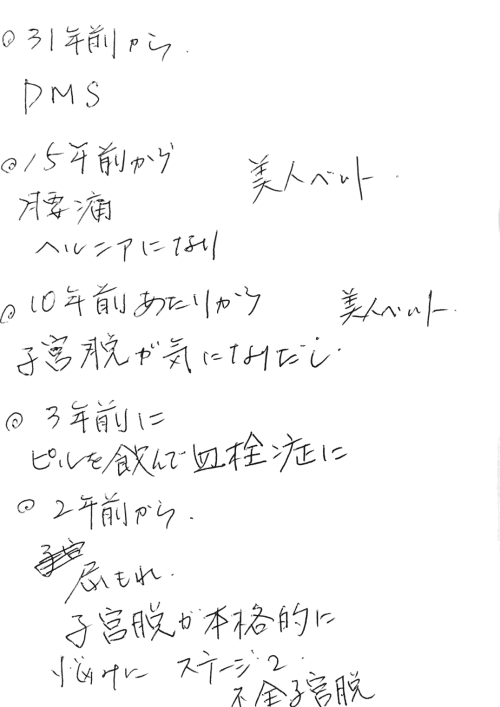 ◎31年前から.
PMS
◎15年前から 美人ベルト.
腰痛
ヘルニアになり
◎10年前あたりから 美人ベルト.
子宮脱が気になりだし.
◎3年前に
ピルを飲んで血栓症に
◎2年前から.
尿もれ.
子宮脱が本格的に
悩みに ステージ2.
不全子宮脱